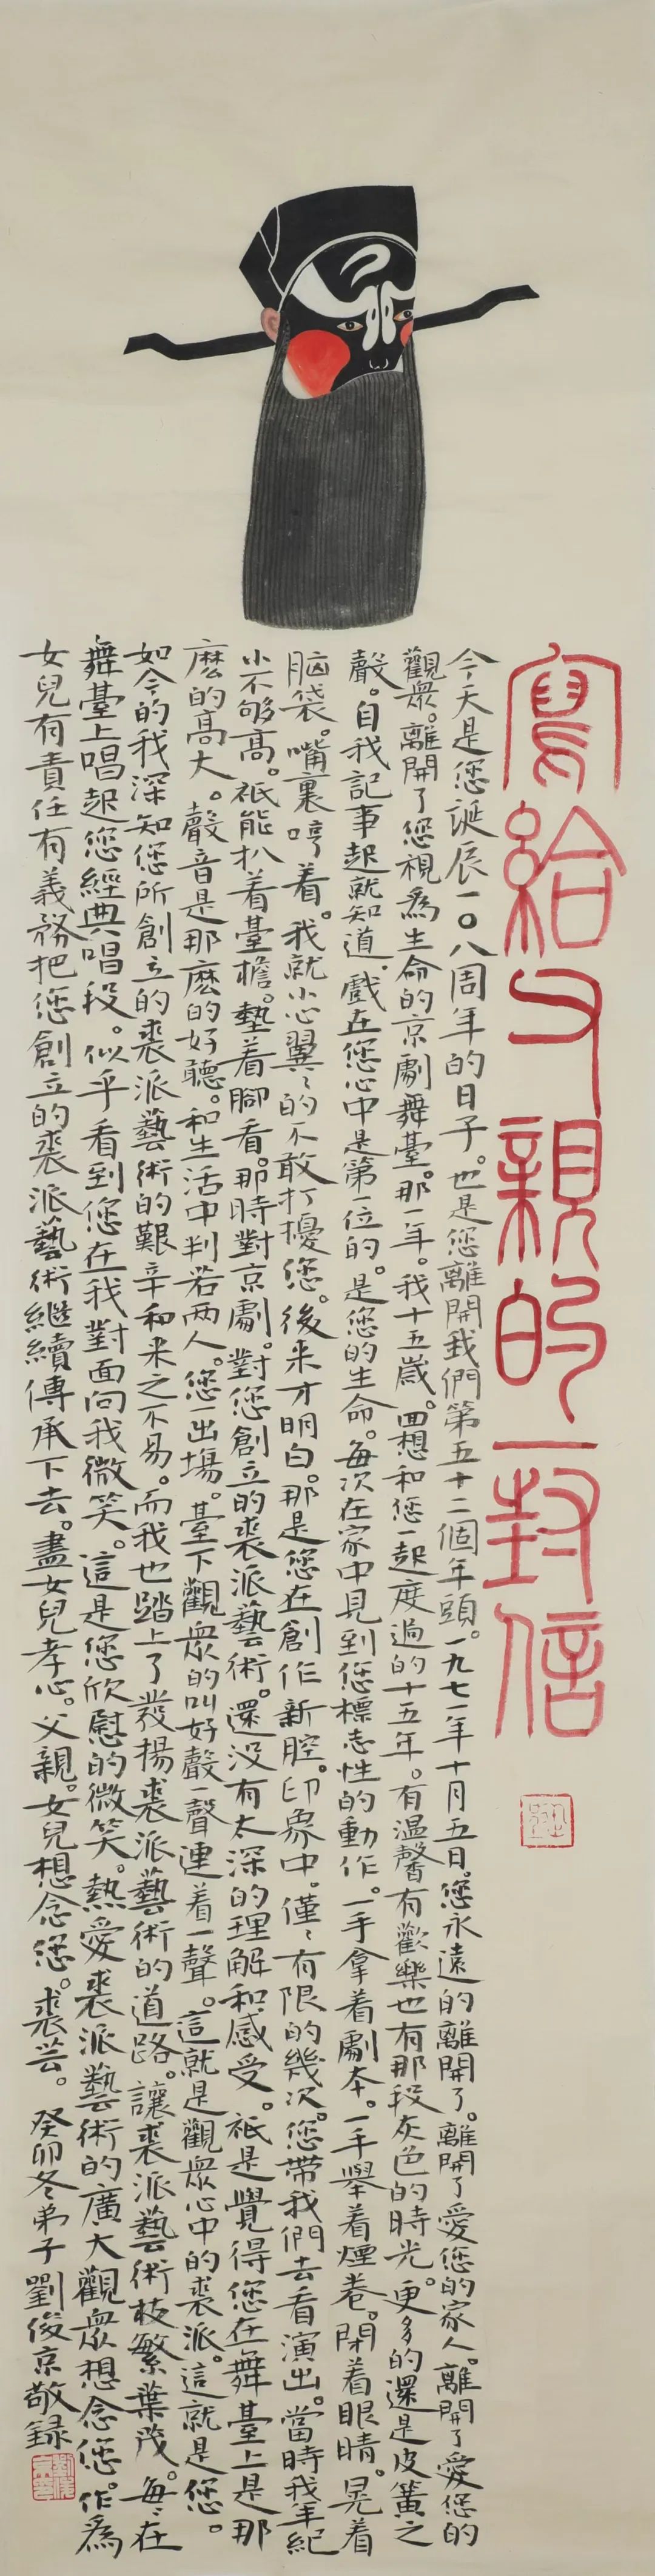 寫給父親的一封信
今天是您誕辰一〇八周年的日子。也是您離開我們第五十二個年頭。一九七一年十月五日。您永遠的離開了。離開了愛您的家人。離開了愛您的
觀眾。離開了您視為生命的京劇舞臺。那一年。我十五歲。回想和您一起度過的十五年。有溫馨有歡樂也有那段灰色的時光。更多的還是皮簧之
聲。自我記事起就知道。戲在您心中是第一位的。是您的生命。每次在家中見到您標志性的動作。一手拿着劇本。一手舉着煙卷。閉着眼睛。晃着
脑袋。嘴裏哼着。我就小心翼々的不敢打擾您。後来才明白。那是您在創作新腔。印象中。僅々有限的幾次。您帶我們去看演出。當時我年紀
小不够高。衹能扒着臺檐。墊着腳看。那時對京劇。對您創立的裘派藝術。還没有太深的理解和感受。衹是覺得您在舞臺上是那
麽的高大。聲音是那麽的好聽。和生活中判若两人。您一出場。臺下觀眾的叫好聲一聲連着一聲。這就是觀眾心中的裘派。這就是您。
如今的我深知您所創立的裘派藝術的艱辛和来之不易。而我也踏上了發揚裘派藝術的道路。讓裘派藝術枝繁葉茂。每々在
舞臺上唱起您經典唱段。似乎看到您在我對面向我微笑。這是您欣慰的微笑。熱愛裘派藝術的廣大觀眾想念您。作為
女兒有責任有義務把您創立的裘派藝術繼續傳承下去。盡女兒孝心。父親。女兒想念您。裘芸。癸卯冬弟子劉俊京敬録